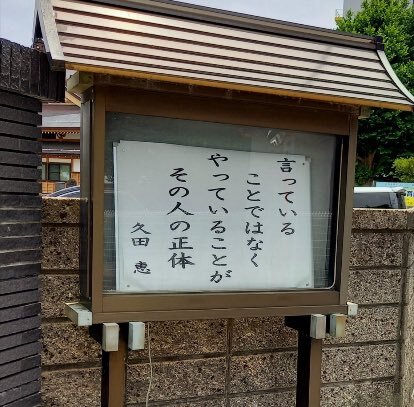 言っている
ことではなく
やっていることが
その人の正体
久田 恵